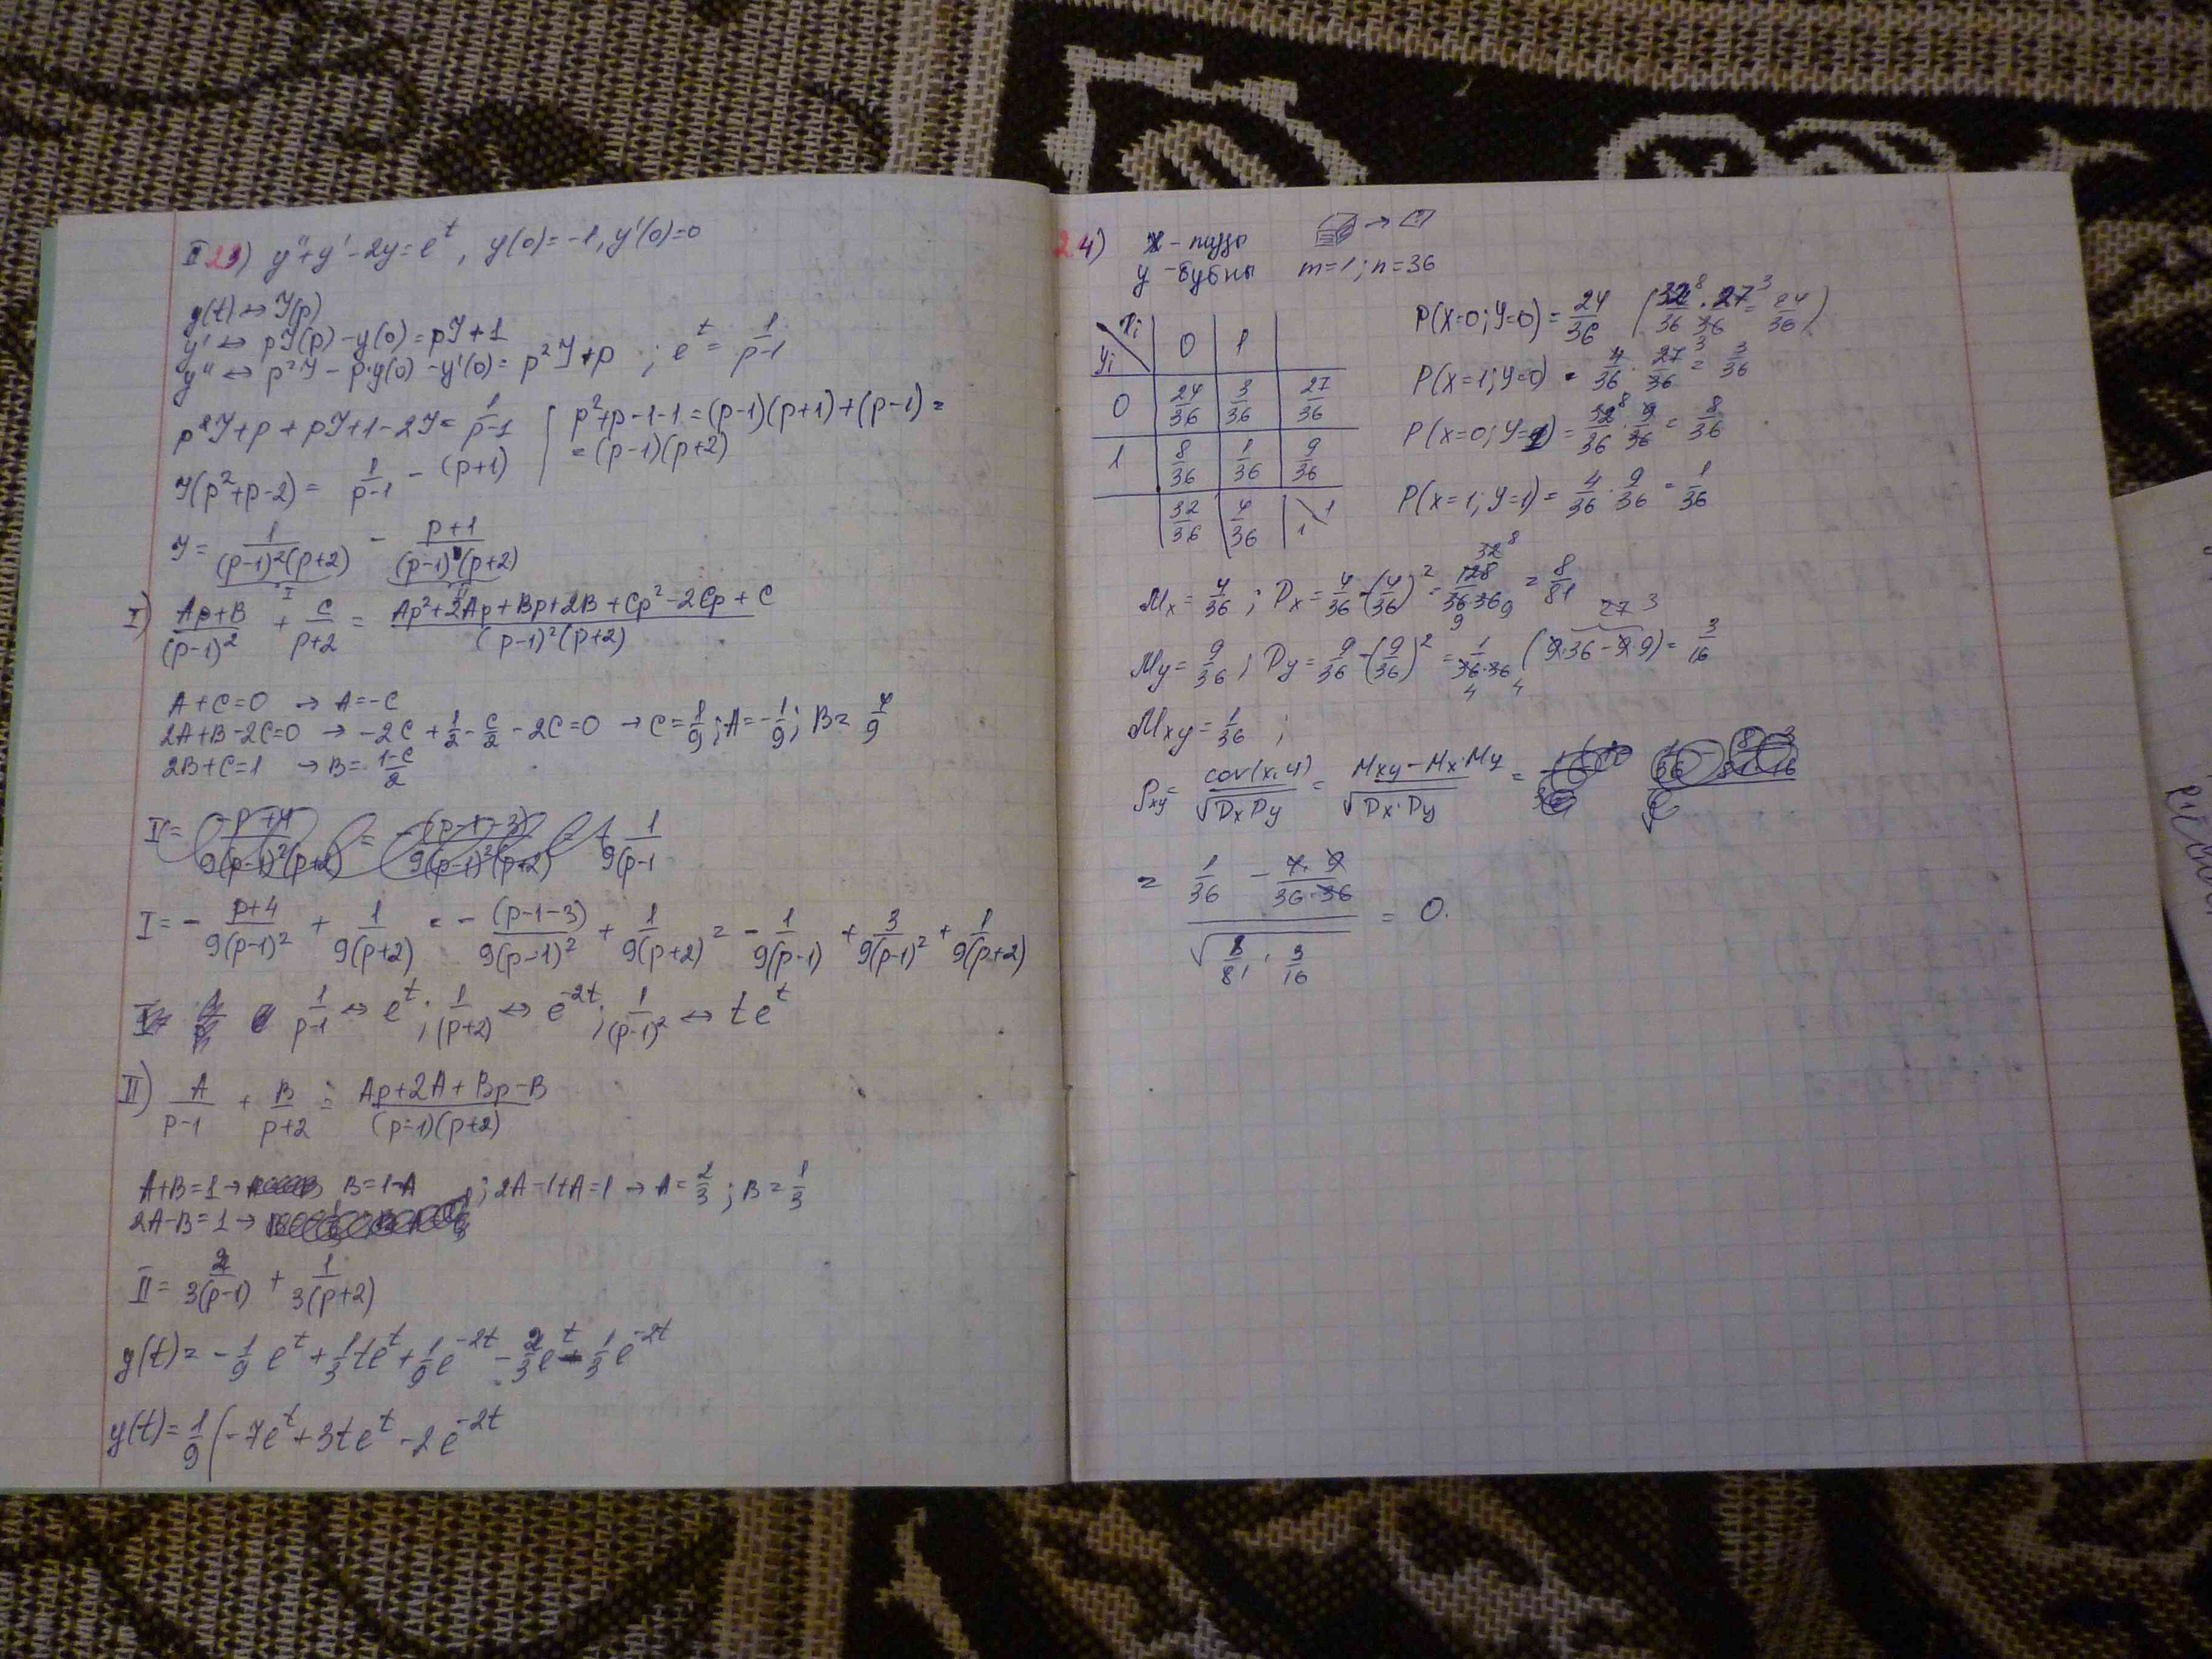 II 23) y''+y'-2y=e^t, y(0)=-1, y'(0)=0
y(t)↔Y(p)
y'↔ pY(p)-y(0)=pY+1
y''↔ p²Y-p·y(0)-y'(0)=p²Y+p ; e^t = 1/(p-1)
p²Y+p+pY+1-2Y= 1/(p-1) | p²+p-1-1=(p-1)(p+1)+(p-1)=
Y(p²+p-2)= 1/(p-1) - (p+1) | =(p-1)(p+2)
Y= 1/((p-1)²(p+2)) - (p+1)/((p-1)(p+2))
I II
I) (Ap+B)/(p-1)² + C/(p+2) = (Ap²+2Ap+Bp+2B+Cp²-2Cp+C)/((p-1)²(p+2))
A+C=0 → A=-C
2A+B-2C=0 → -2C+1/2-C/2-2C=0 → C=1/9; A=-1/9; B=4/9
2B+C=1 → B=(1-C)/2
I = - (p+4)/(9(p-1)²) + 1/(9(p+2)) = - (p-1-3)/(9(p-1)²) + 1/(9(p+2)) = - 1/(9(p-1)) + 3/(9(p-1)²) + 1/(9(p+2))
1/(p-1) ↔ e^t; 1/(p+2) ↔ e^-2t; 1/(p-1)² ↔ te^t
II) A/(p-1) + B/(p+2) = (Ap+2A+Bp-B)/((p-1)(p+2))
A+B=1→ B=1-A ; 2A-1+A=1 → A=2/3; B=1/3
2A-B=1→
II= 2/(3(p-1)) + 1/(3(p+2))
y(t)= -1/9 e^t + 1/3 te^t + 1/9 e^-2t - 2/3 e^t - 1/3 e^-2t
y(t)= 1/9 (-7e^t+3te^t-2e^-2t
24) x - тузы
y - бубны m=1; n=36
xi
yi 0 1
0 24/36 3/36 27/36
1 8/36 1/36 9/36
32/36 4/36 1 1
P(X=0; Y=0) = 24/36 (32/36 · 27/36 = 24/36)
P(X=1; Y=0) = 4/36 · 27/36 = 3/36
P(X=0; Y=1) = 32/36 · 9/36 = 8/36
P(X=1; Y=1) = 4/36 · 9/36 = 1/36
Mx= 4/36 ; Dx= 4/36 - (4/36)² = 128/(36·36) = 8/81
My= 9/36 ; Dy= 9/36 - (9/36)² = 1/(36·36) (9·36-9·9) = 3/16
Mxy= 1/36 ;
ρxy= cov(x,y)/√(DxDy) = (Mxy-Mx·My)/√(Dx·Dy) =
= (1/36 - (4·9)/(36·36))/√(8/81 · 3/16) = 0.